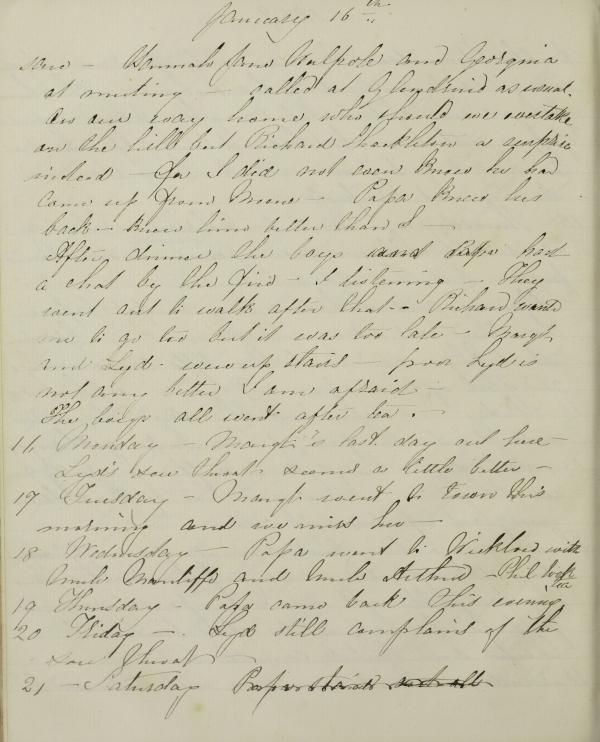 January 16th
saw - Hannah Jane Walpole and Georgina
at meeting - called at Glendruid as usual.
On our way home who should we overtake
on the hill but Richard Shackleton a surprise
indeed - for I did not even know he had
come up from Moone - Papa knew his
back - knew him better than I -
After dinner the boys and Papa had
a chat by the fire - I listening - They
went out to walk after that - Richard wanted
me to go too but it was too late - Margt
and Lyd. were up stairs - poor Lyd is
not any better I am afraid -
The boys all went after tea.
16 Monday - Margt's last day out here -
Lyd's sore throat seemed a little better -
17 Tuesday - Margt went to town this
morning and we miss her -
18 Wednesday - Papa went to Wicklow with
Uncle and Uncle Arthur - Phil took
tea
19 Thursday - Papa came back this evening
20 Friday - Lyd still complains of the
sore throat
21 - Saturday